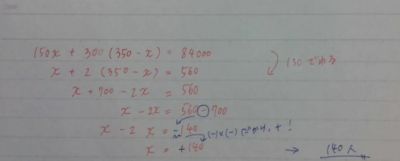 150x + 300 (350 - x) = 84000
x + 2 (350 - x) = 560 150でわる
x + 700 - 2x = 560
x - 2x = 560 - 700
x - 2x = -140 (-)×(-)だから、+!
x = +140 → 140人